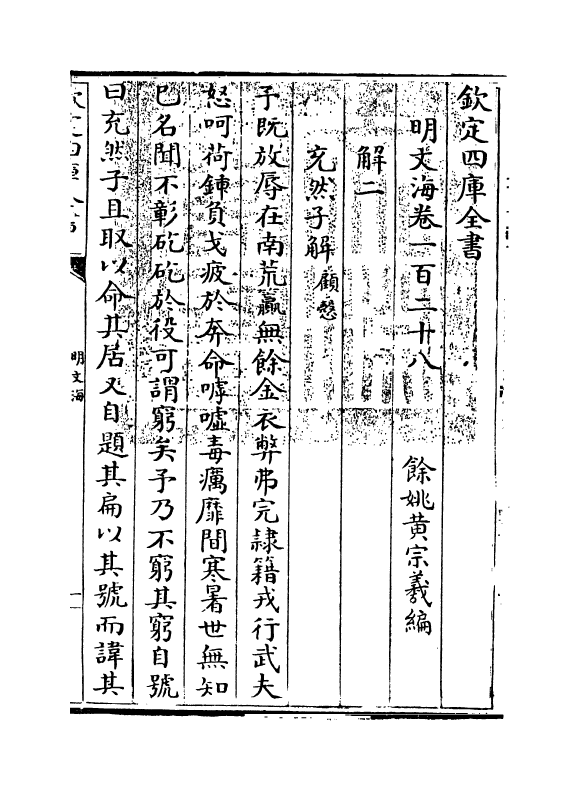 欽定四庫全書
明文海卷一百二十八　餘姚黄宗羲編
解二
充然子解 顧慤
予既放辱在南荒羸無餘金衣弊弗完隷籍戎行武夫
怒呵荷鍤負戈疲於奔命嘑噓毒癘靡間寒暑世無知
已名聞不彰矻矻於役可謂窮矣予乃不窮其窮自號
曰充然子且取以命其居又自題其扁以其號而諱其
欽定四庫全書
明文海
一